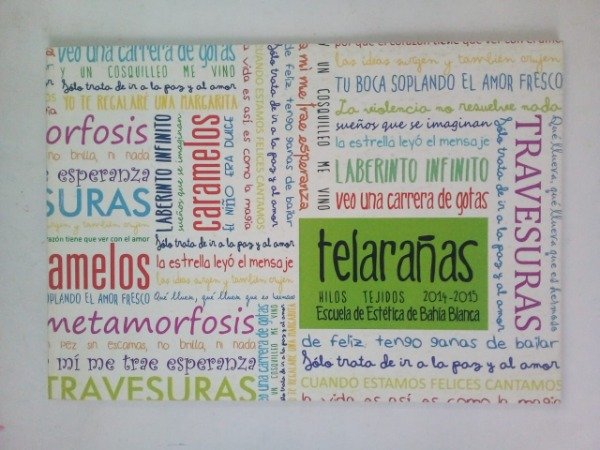 veo una carrera de gotas
Y UN COSQUILLEO ME VINO
Sólo trata de ir a la paz y al amor
YO TE REGALARÉ UNA MARGARITA
morfosis
no brilla, ni nada
me esperanza
SURAS
corazón tiene que ver con el amor
amelos
SOPLANDO EL AMOR FRESCO
metamorfosis
pez sin escamas, no brilla, ni nada
a mí me trae esperanza
TRAVESURAS
LABERINTO INFINITO
sueños que se imaginan
caramelos
EL NIÑO ERA DULCE
la vida es así, es como la magia
CUANDO ESTAMOS FELICES CANTAMOS
Sólo trata de ir a la paz y al amor
de feliz, tengo ganas de bailar
a mí me trae esperanza
Sólo trata de ir a la paz y al amor
la estrella leyó el mensaje
las ideas surgen y también crujen
Qué llueva, qué llueva que es hermoso
veo una carrera de gotas
Y UN COSQUILLEO ME VINO
Y UN COSQUILLEO ME VINO
por que el corazón tiene que ver con el amor
las ideas surgen y también crujen
TU BOCA SOPLANDO EL AMOR FRESCO
La violencia no resuelve nada
sueños que se imaginan
la estrella leyó el mensaje
LABERINTO INFINITO
veo una carrera de gotas
Sólo trata de ir a la paz y al amor
TRAVESURAS
Qué llueva, qué llueva que es hermoso
telarañas
HILOS TEJIDOS 2014-2015
Escuela de Estética de Bahía Blanca
de feliz, tengo ganas de bailar
Sólo trata de ir a la paz y al amor
CUANDO ESTAMOS FELICES CANTAMOS
la vida es así, es como la magia